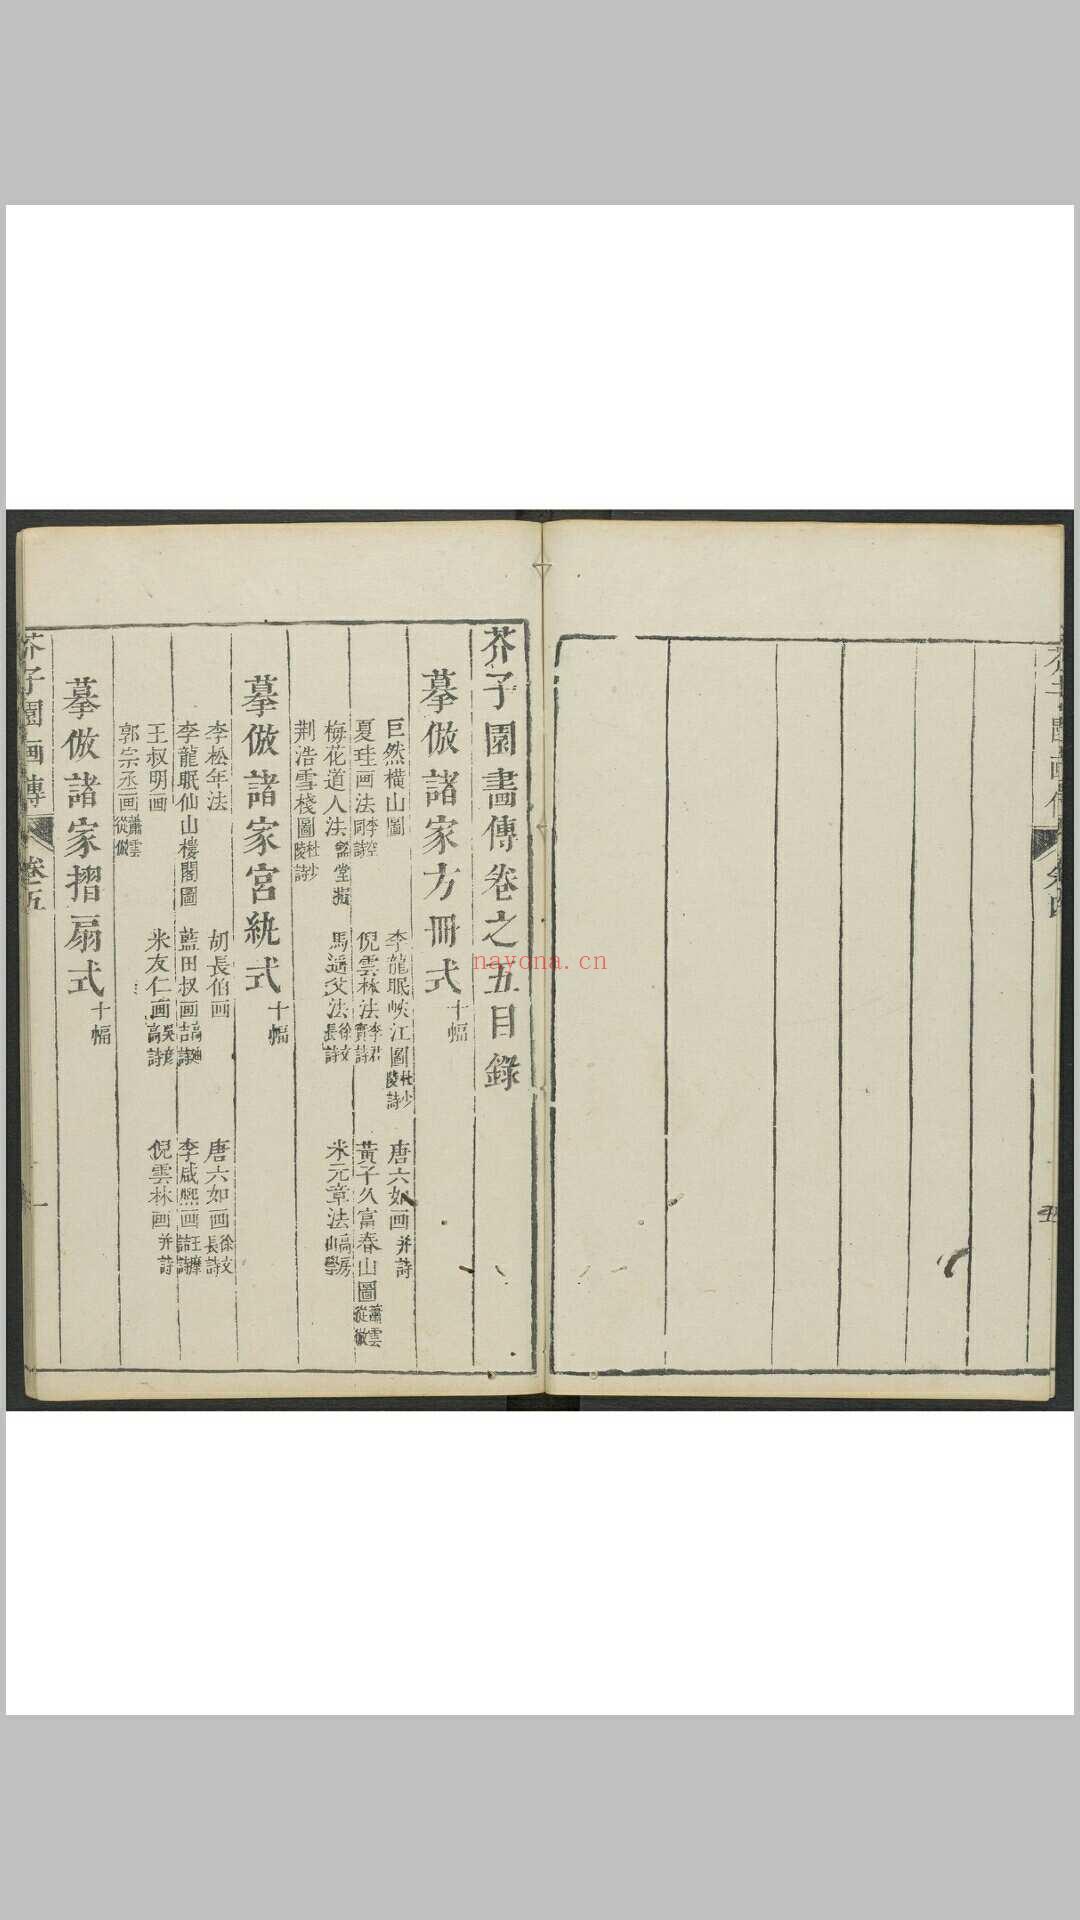 芥子園畫傳卷之五目錄
摹倣諸家方冊式十幅
巨然橫山圖 李龍眠峽江圖杜少陵詩 唐六如画并詩
夏珪画法李空同詩 倪雲林法李君實詩 黃子久富春山圖蕭雲從倣
梅花道人法 馬遥父法徐文長詩 米元章法高房山學
荆浩雪棧圖杜少陵詩
摹倣諸家宮紈式十幅
李松年法 胡長伯画 唐六如画徐文長詩
李龍眠仙山樓閣圖 藍田叔画高廸詩 李咸熙画王摩詰詩
王叔明画 米友仁画吳彥高詩 倪雲林画并詩
郭宗丞画蕭雲從倣
摹倣諸家摺扇式十幅
芥子園画傳 卷五 一
nayona.cn